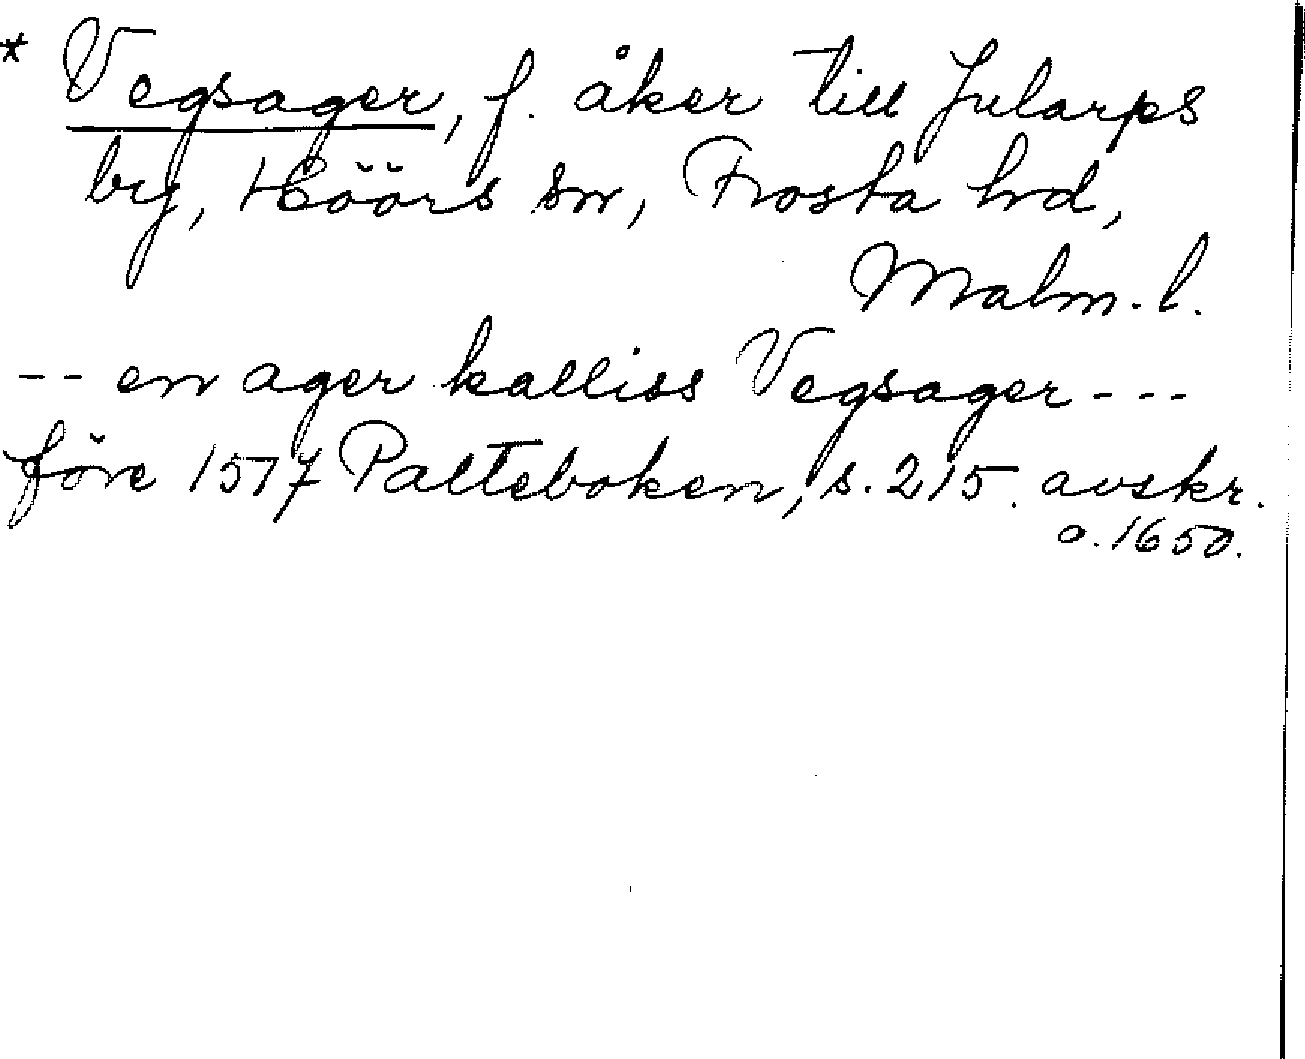 * Vegsager, f. åker till Jularps
by, Höörs sn, Frosta hd,
Malm. l.
-- en ager kalliss Vegsager ---
före 1577 Palteboken, s. 215. avskr.
o. 1650.